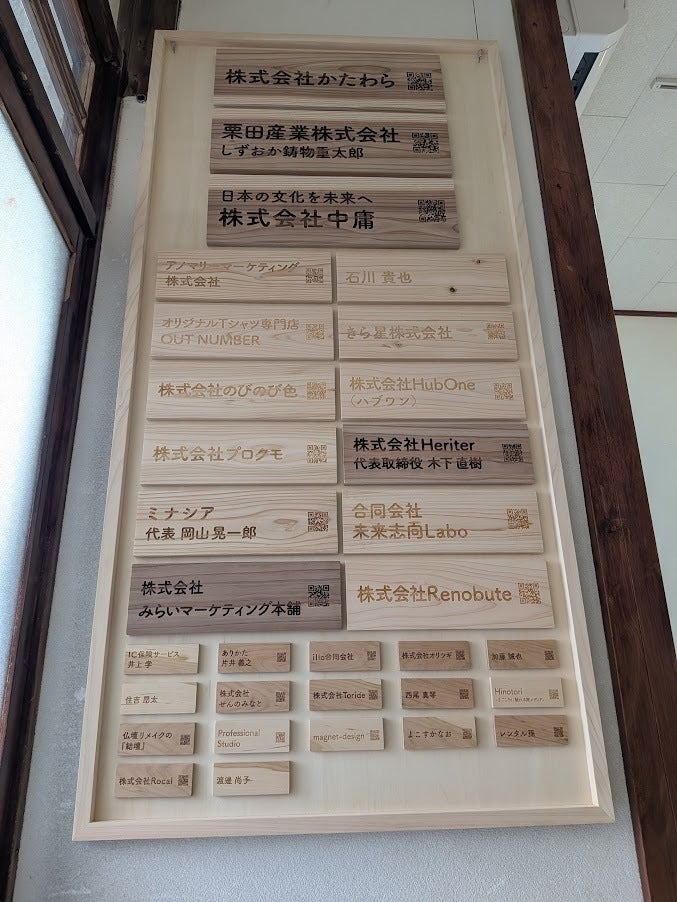 株式会社かたわら
栗田産業株式会社
しずおか鋳物重太郎
日本の文化を未来へ
株式会社中庸
アノマリーマーケティング
株式会社
石川 貴也
オリジナルTシャツ専門店
OUT NUMBER
きら星株式会社
株式会社のびのび色
株式会社HubOne
(ハブワン)
株式会社プロクモ
株式会社Heriter
代表取締役 木下直樹
ミナシア
代表 岡山晃一郎
合同会社
未来志向Labo
株式会社
みらいマーケティング本舗
株式会社Renobute
TC保険サービス
井上 学
ありかた
片井 義之
illo合同会社
株式会社オリツギ
加藤 誠也
住吉 昂太
株式会社
ぜんのみなと
株式会社Toride
西尾 真琴
Hinotori
仏壇リメイクの
「結壇」
Professional
Studio
magnet-design
よこすかなお
レンタル孫
株式会社Rocal
渡邊 尚子